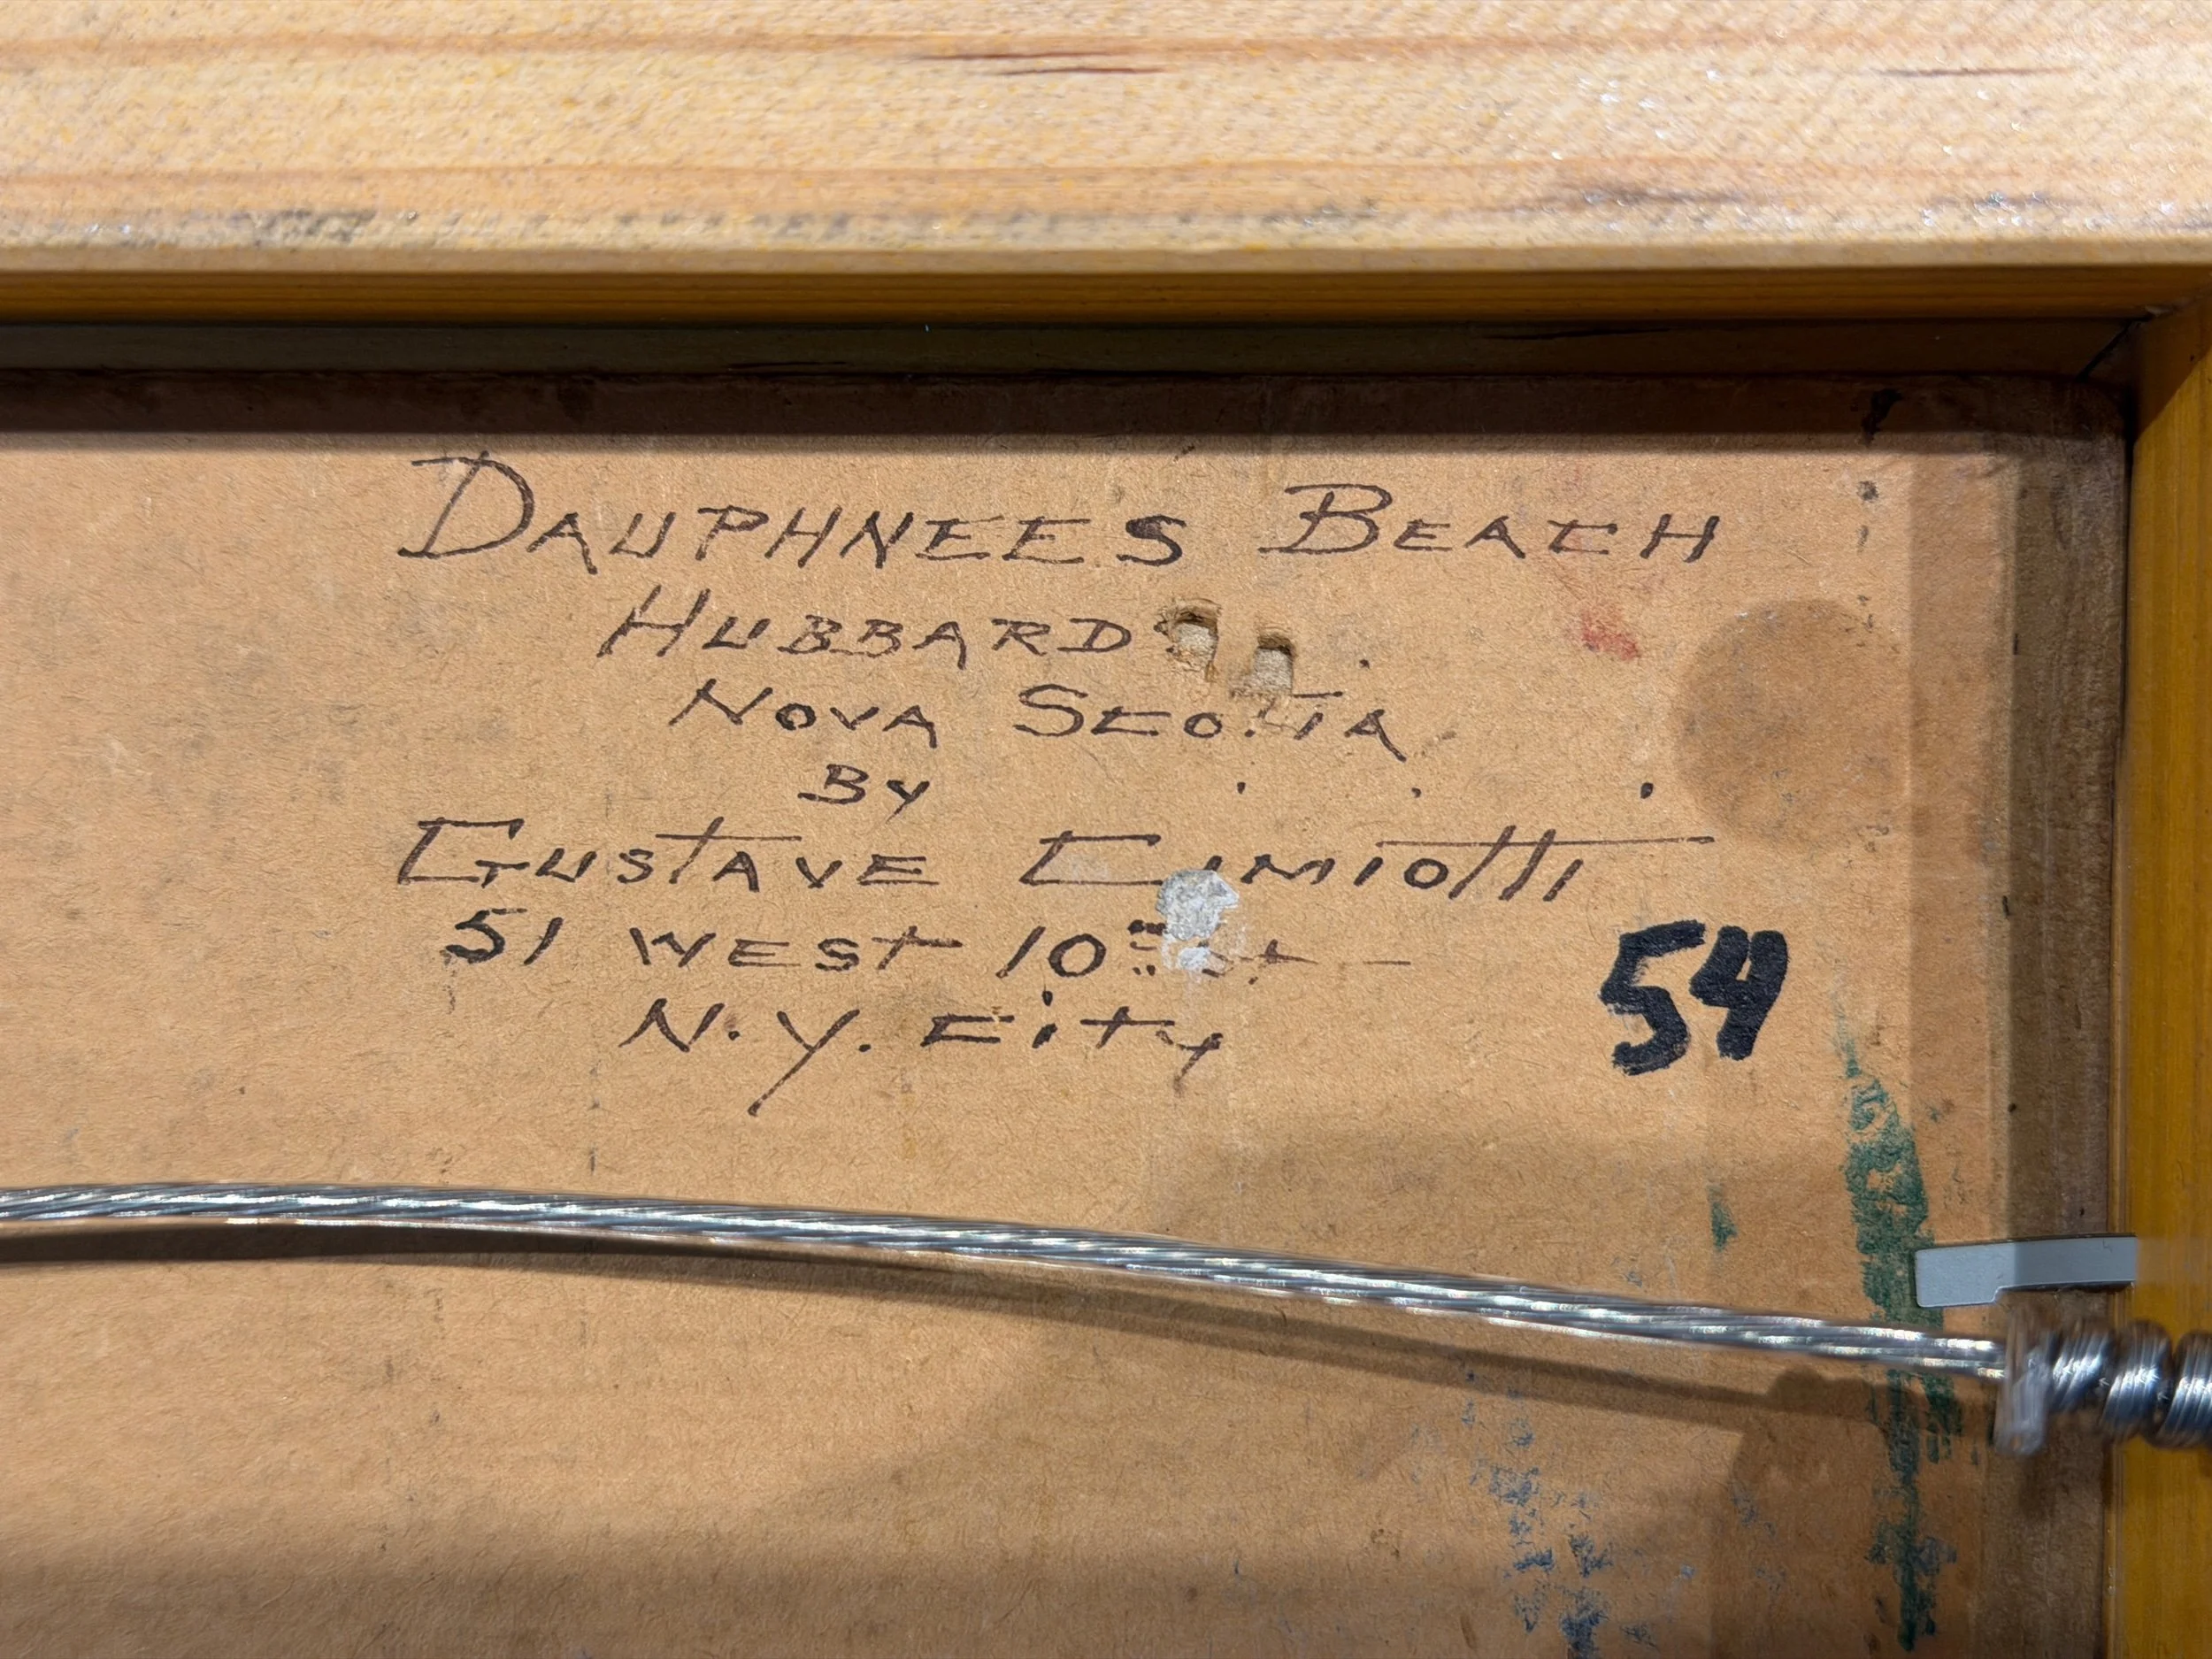 DAUPHNEE'S BEACH
HUBBARDS
NOVA SCOTIA
BY
GUSTAVE CIMIOTTI
51 WEST 10TH St
N.Y. City
54